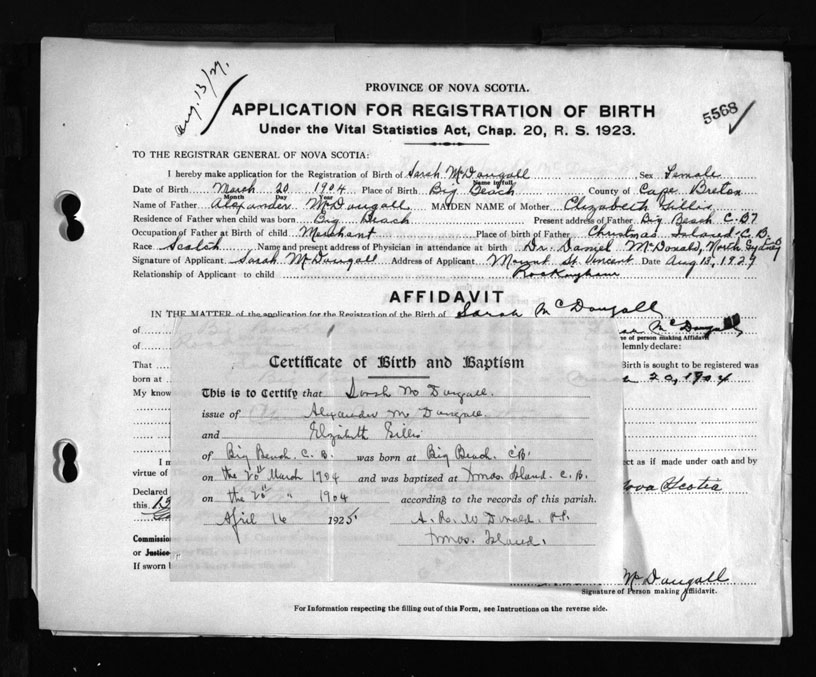 Aug. 13/27.
PROVINCE OF NOVA SCOTIA.
5568
APPLICATION FOR REGISTRATION OF BIRTH
Under the Vital Statistics Act, Chap. 20, R. S. 1923.
TO THE REGISTRAR GENERAL OF NOVA SCOTIA:
I hereby make application for the Registration of Birth of Sarah McDougall Sex Female
Name in full
Date of Birth March 20 1904 Place of Birth Big Beach County of Cape Breton
Month Day Year
Name of Father Alexander McDougall MAIDEN NAME of Mother Elizabeth Gillis
Residence of Father when child was born Big Beach Present address of Father Big Beach C.B.
Occupation of Father at Birth of child Merchant Place of birth of Father Christmas Island C.B.
Race Scotch Name and present address of Physician in attendance at birth Dr. Daniel McDonald, North Sydney
Signature of Applicant Sarah McDougall Address of Applicant Mount St. Vincent Date Aug 13, 1927
Relationship of Applicant to child Rockingham
AFFIDAVIT
IN THE MATTER of the application for the Registration of the Birth of Sarah McDougall
of McDougall
of person making Affidavit
of solemnly declare:
That Birth is sought to be registered was
born at 20, 1904
My know
Certificate of Birth and Baptism
This is to Certify that Sarah Mc Dougall.
issue of Alexander Mc Dougall.
and Elizabeth Gillis
of Big Beach, C. B. was born at Big Beach. C.B.
on the 20th March 1904 and was baptized at Xmas Island. C. B.
on the 20th " 1904 according to the records of this parish.
April 16 1925 A. R. McDonald. P.P.
Xmas. Island.
I m ect as if made under oath and by
virtue of
Declared Nova Scotia
this
Commiss
or Justice
If sworn
McDougall
Signature of Person making Affidavit.
For Information respecting the filling out of this Form, see Instructions on the reverse side.